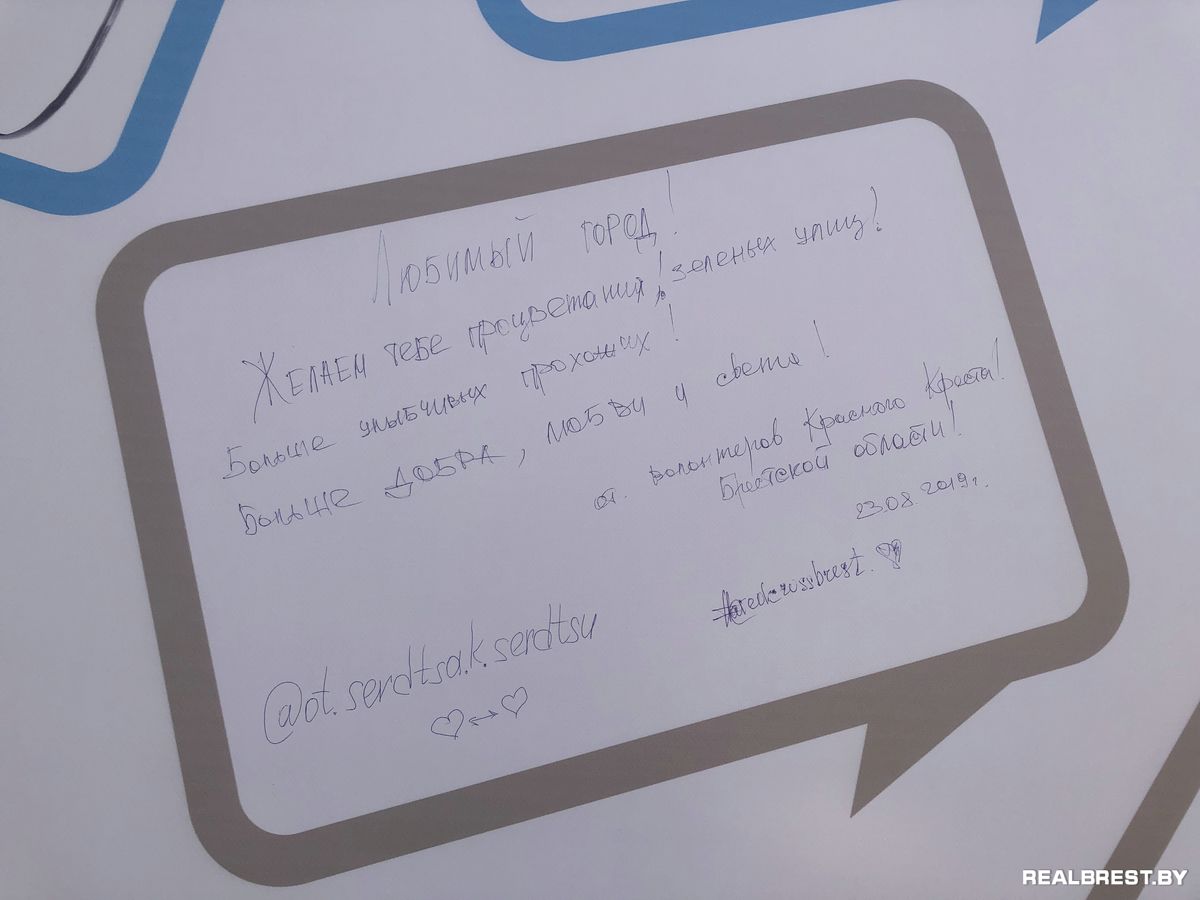 Любимый город!
Желаем тебе процветания! зеленых улиц!
Больше улыбчивых прохожих!
Больше добра, любви и света!
от. волонтеров Красного Креста!
Брестской области!
23.08.2019г.
@ot.serdtsa.k.serdtsu
REALBREST.BY